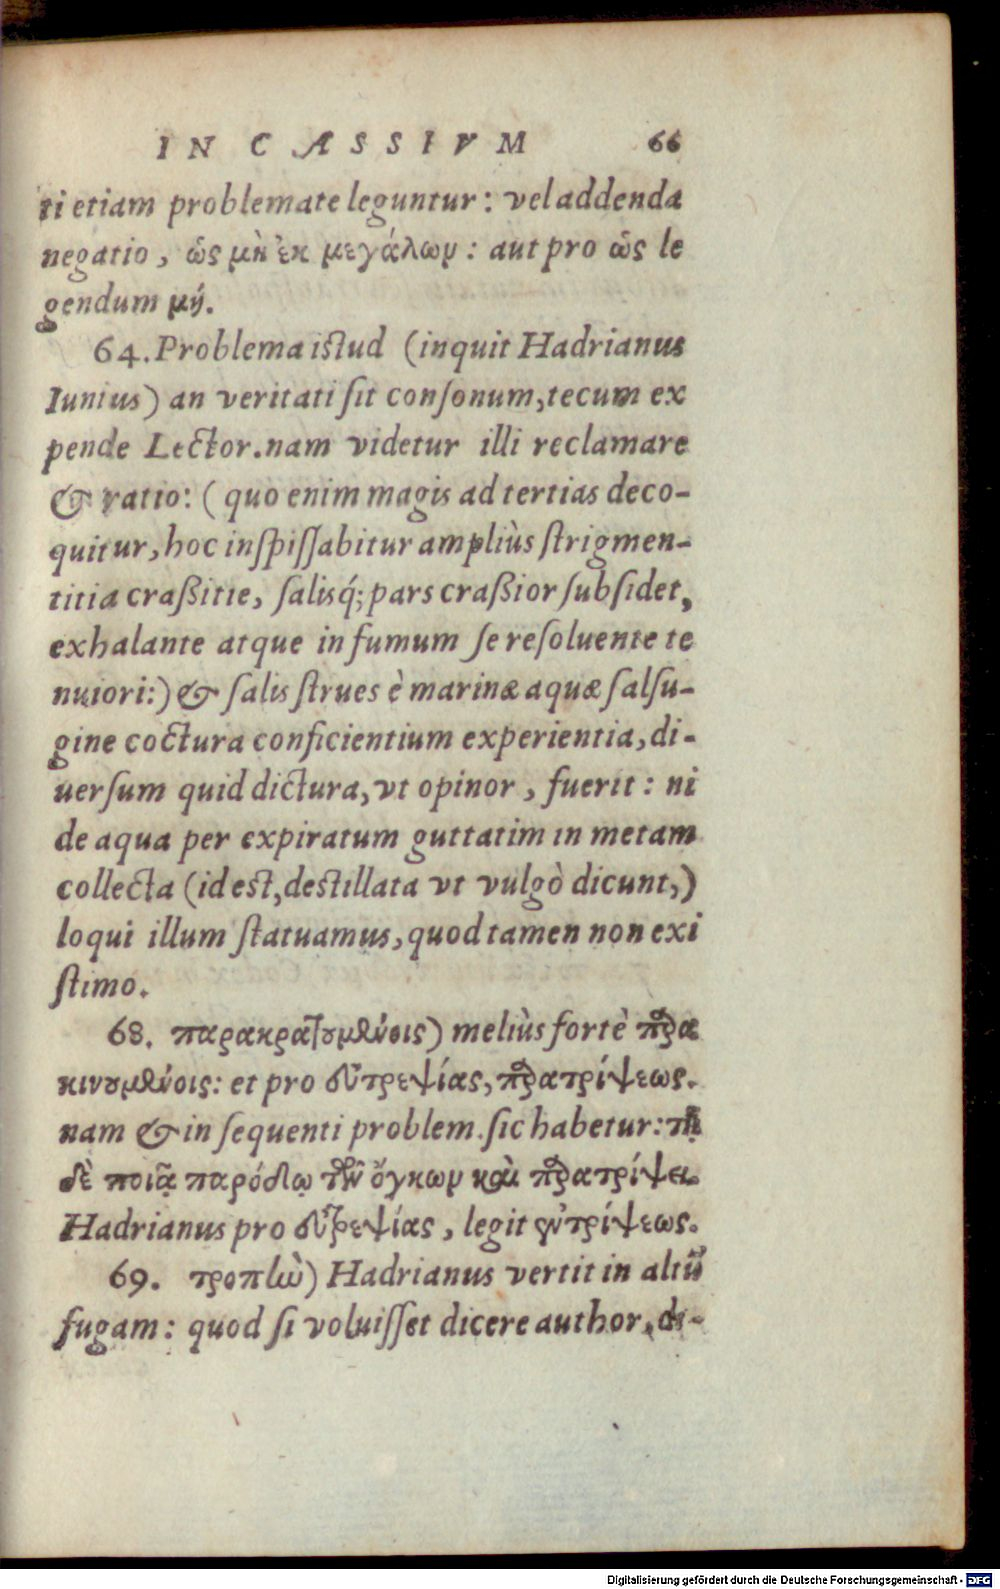 IN CÆSSIVM 66
ti etiam problemate leguntur: vel addenda
negatio, ὧς μὴ ἐκ μεγάλων: aut pro ὧς le
gendum μή.
64. Problema iſtud (inquit Hadrianus
Iunius) an veritati ſit conſonum, tecum ex
pende Lector. nam videtur illi reclamare
& ratio: (quo enim magis ad tertias deco-
quitur, hoc inſpiſſabitur ampliùs ſtrigmen-
titia craßitie, ſalisq́; pars craßior ſubſidet,
exhalante atque in fumum ſe reſoluente te
nuiori:) & ſalis ſtrues è marinæ aquæ ſalſu-
gine coctura conficientium experientia, di-
uerſum quid dictura, vt opinor, fuerit: ni
de aqua per expiratum guttatim in metam
collecta (id eſt, deſtillata vt vulgò dicunt,)
loqui illum ſtatuamus, quod tamen non exi
ſtimo.
68. παρακρατουμένοις) meliùs fortè παρα
κινουμένοις: et pro συτρεψίας, παρατρίψεως.
nam & in ſequenti problem. ſic habetur: τῇ
δὲ ποιᾷ παρόδῳ τῶν ὄγκων καὶ παρατρίψει.
Hadrianus pro συτρεψίας, legit συτρίψεως.
69. τροπὴν) Hadrianus vertit in altũ
fugam: quod ſi voluiſſet dicere author, di-
Digitalisierung gefördert durch die Deutsche Forschungsgemeinschaft - DFG